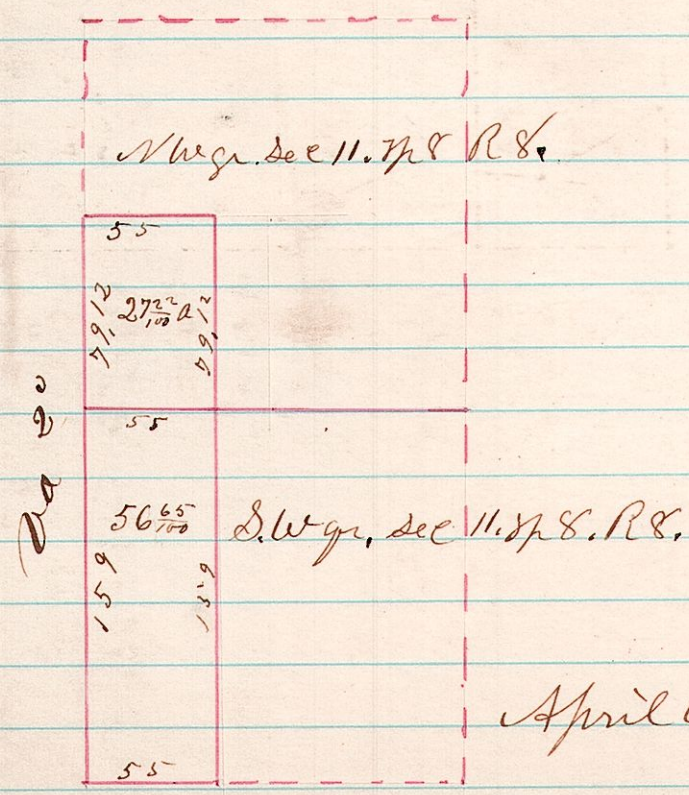 N W qr. Sec 11. Tp 8 R 8.
55
79,12 27 22/100 a 79,12
55
56 65/100 S. W qr. Sec 11. Tp 8. R 8.
159 159
April
55